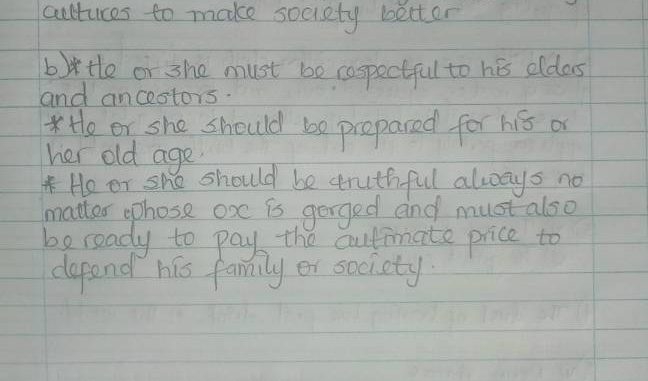 cultures to make society better
b)* He or she must be respectful to his elders
and ancestors.
* He or she should be prepared for his or
her old age.
* He or she should be truthful always no
matter whose ox is gorged and must also
be ready to pay the aultimate price to
defend his family or society.